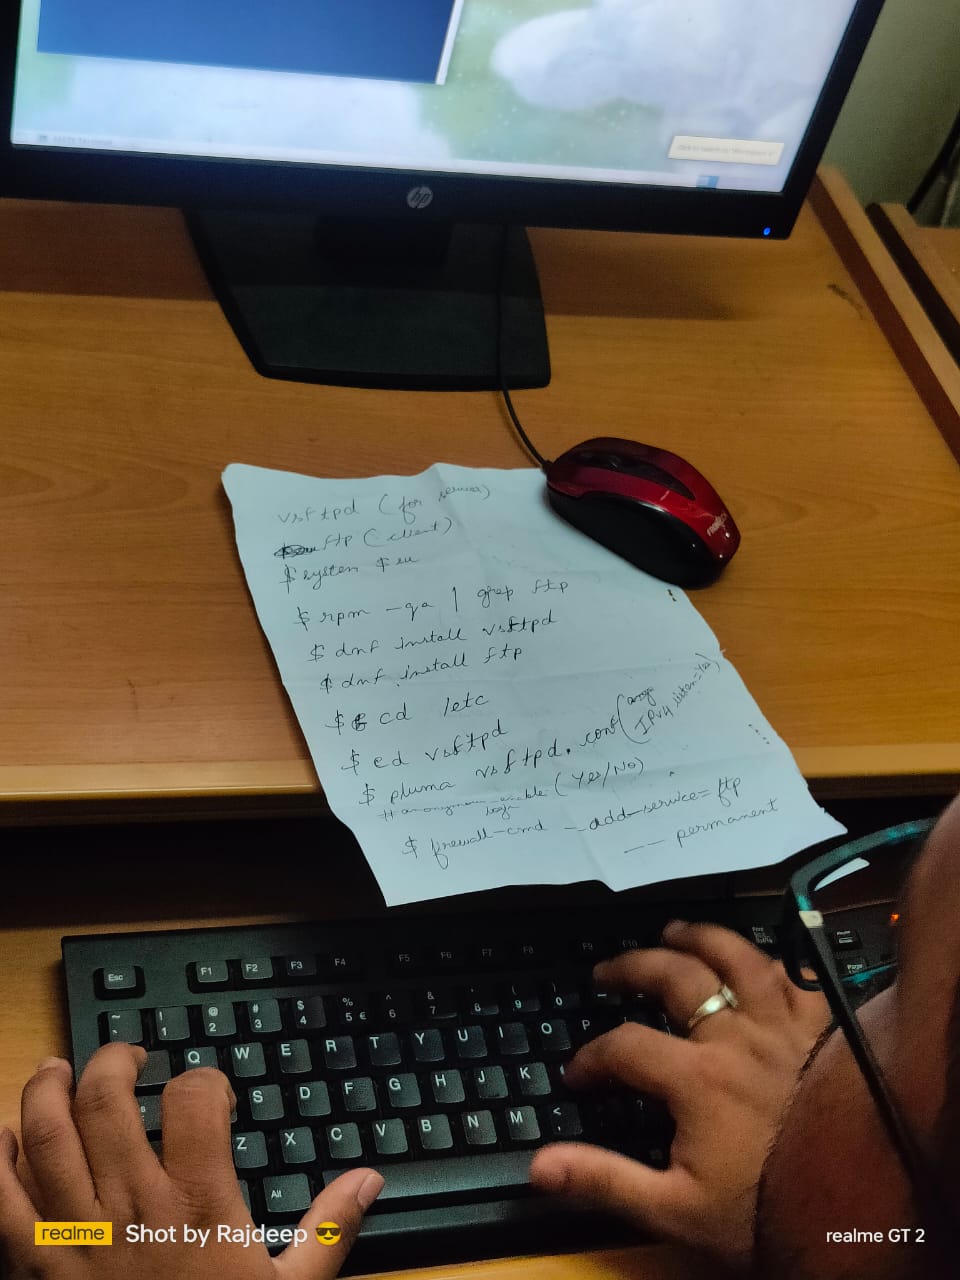 hp
vsftpd (for server)
ftp (client)
$ system $ su
$ rpm -qa | grep ftp
$ dnf install vsftpd
$ dnf install ftp
$ cd /etc
$ cd vsftpd
$ pluma vsftpd.conf (
IPV4 listen=Yes)
# anonymous-enable (Yes/No)
login
$ firewall-cmd --add-service=ftp
-- permanent
Esc F1 F2 F3 F4 F5 F6 F7 F8 F9 F10
~ ! @ # $ % ^ & ( )
1 2 3 4 5 € 6 7 8 9 0
Q W E R T Y U I O P
S D F G H J K
Z X C V B N M <
Alt
realme Shot by Rajdeep 😎
realme GT 2